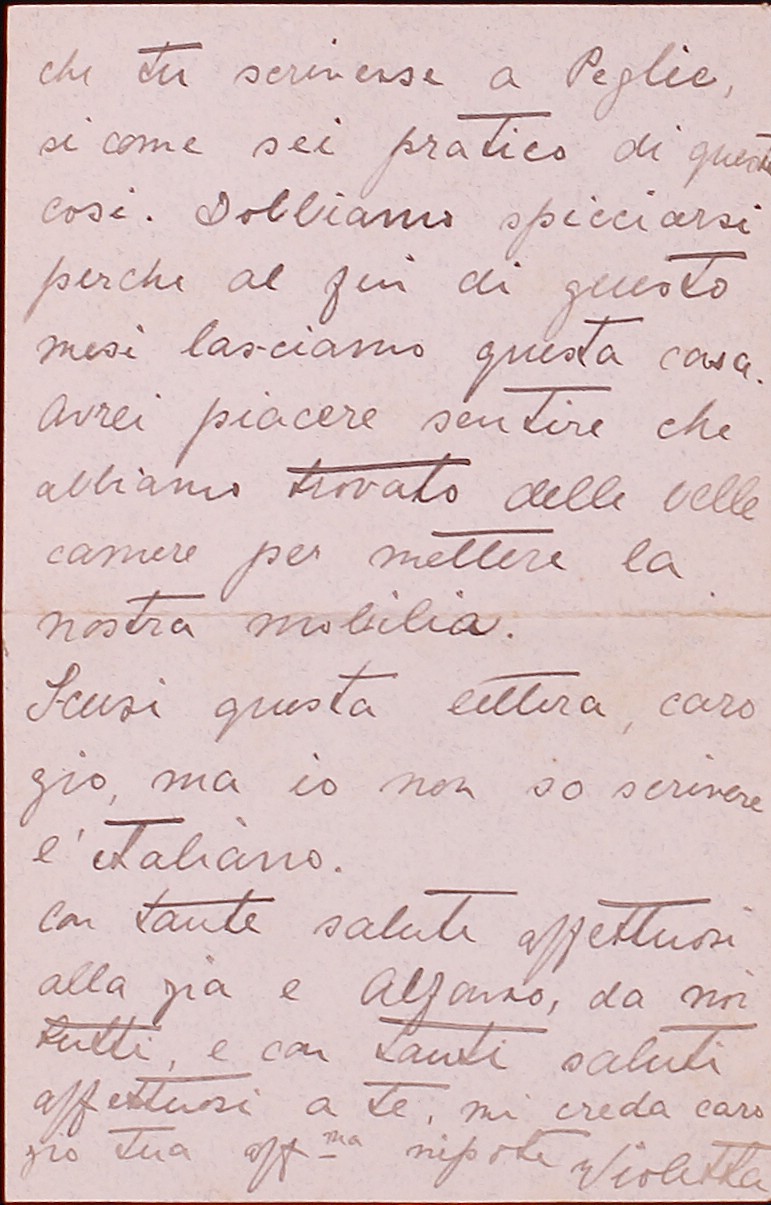 che tu scrivesse a Peglie,
si come sei pratico di queste
cosi. Dobbiamo spicciarsi
perche al fin di questo
mesi lasciamo questa casa.
Avrei piacere sentire che
abbiamo trovato delle belle
camere per mettere la
nostra mobilia.
Scusi questa lettera, caro
zio, ma io non so scrivere
l'italiano.
con tante salute affettuosi
alla zia e Alfonso, da noi
tutti, e con tanti saluti
affettuosi a te, mi creda caro
zio tua aff ma nipote Violetta